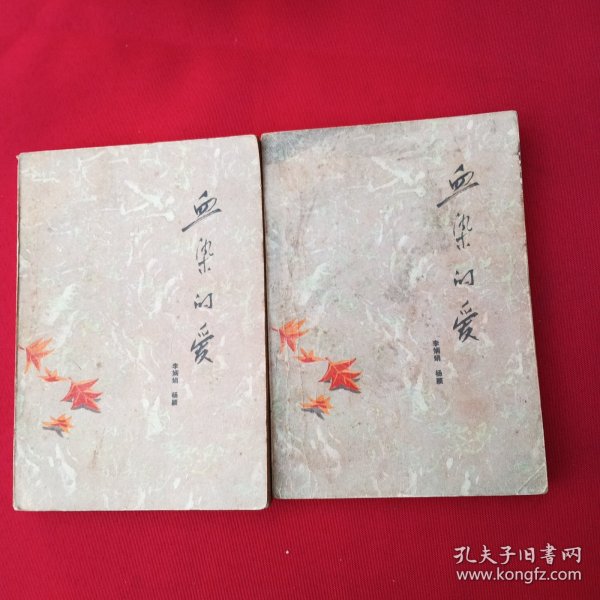 血染的爱
李娴娟 杨颖
血染的爱
李娴娟 杨颖
孔夫子旧书网
www.kongfz.com